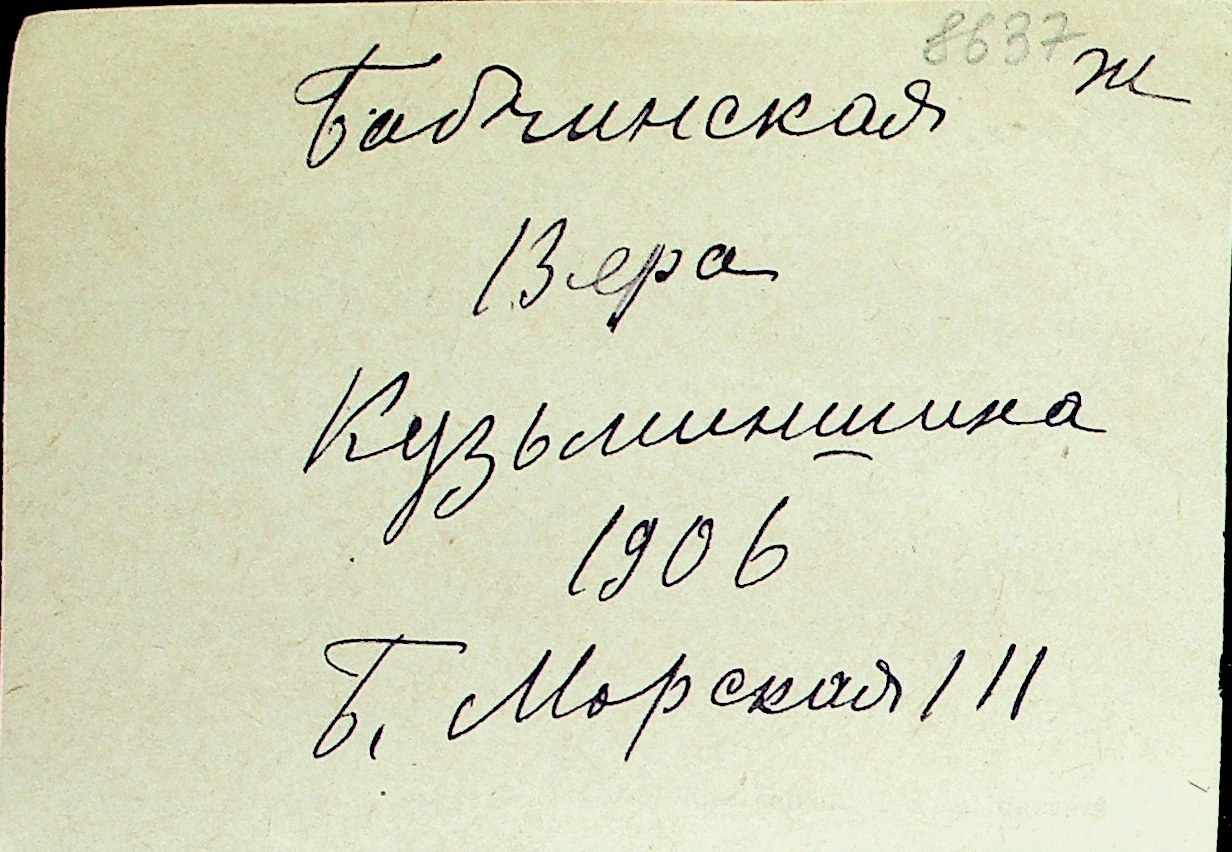 8637 ж
Бабчинская
Вера
Кузьминшина
1906
Б. Морская 111